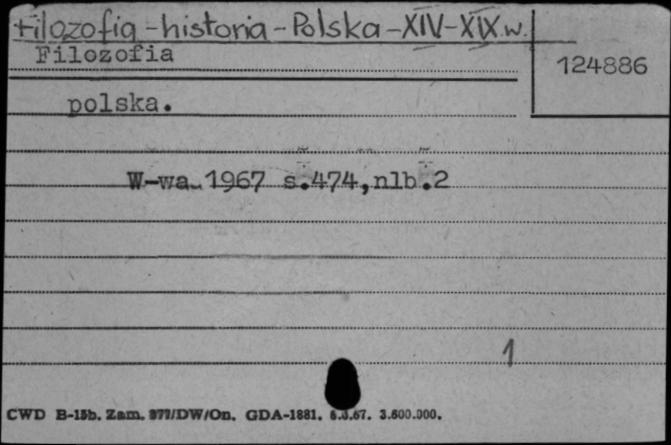 Filozofia - historia - Polska - XIV-XIX w.
Filozofia
124886
polska.
W-wa 1967 s.474,nlb.2
1
CWD B-15b. Zam. 877/DW/On. GDA-1881. 6.3.67. 3.600.000.